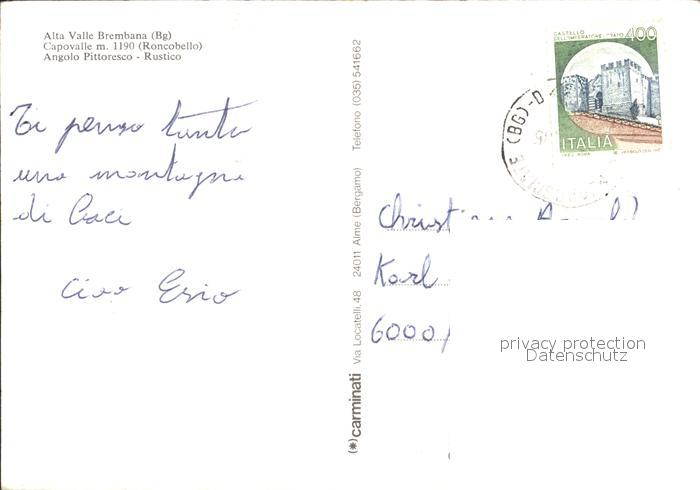 Alta Valle Brembana (Bg)
Capovalle m. 1190 (Roncobello)
Angolo Pittoresco - Rustico
Ti penso tanto
una montagna
di baci
Ciao Ezio
(*) carminati Via Locatelli, 48 24011 Alme (Bergamo) Telefono (035) 541662
CASTELLO
DELL'IMPERATORE - PRATO 400
ITALIA
(BG)-D
Christ
Karl
6000
privacy protection
Datenschutz